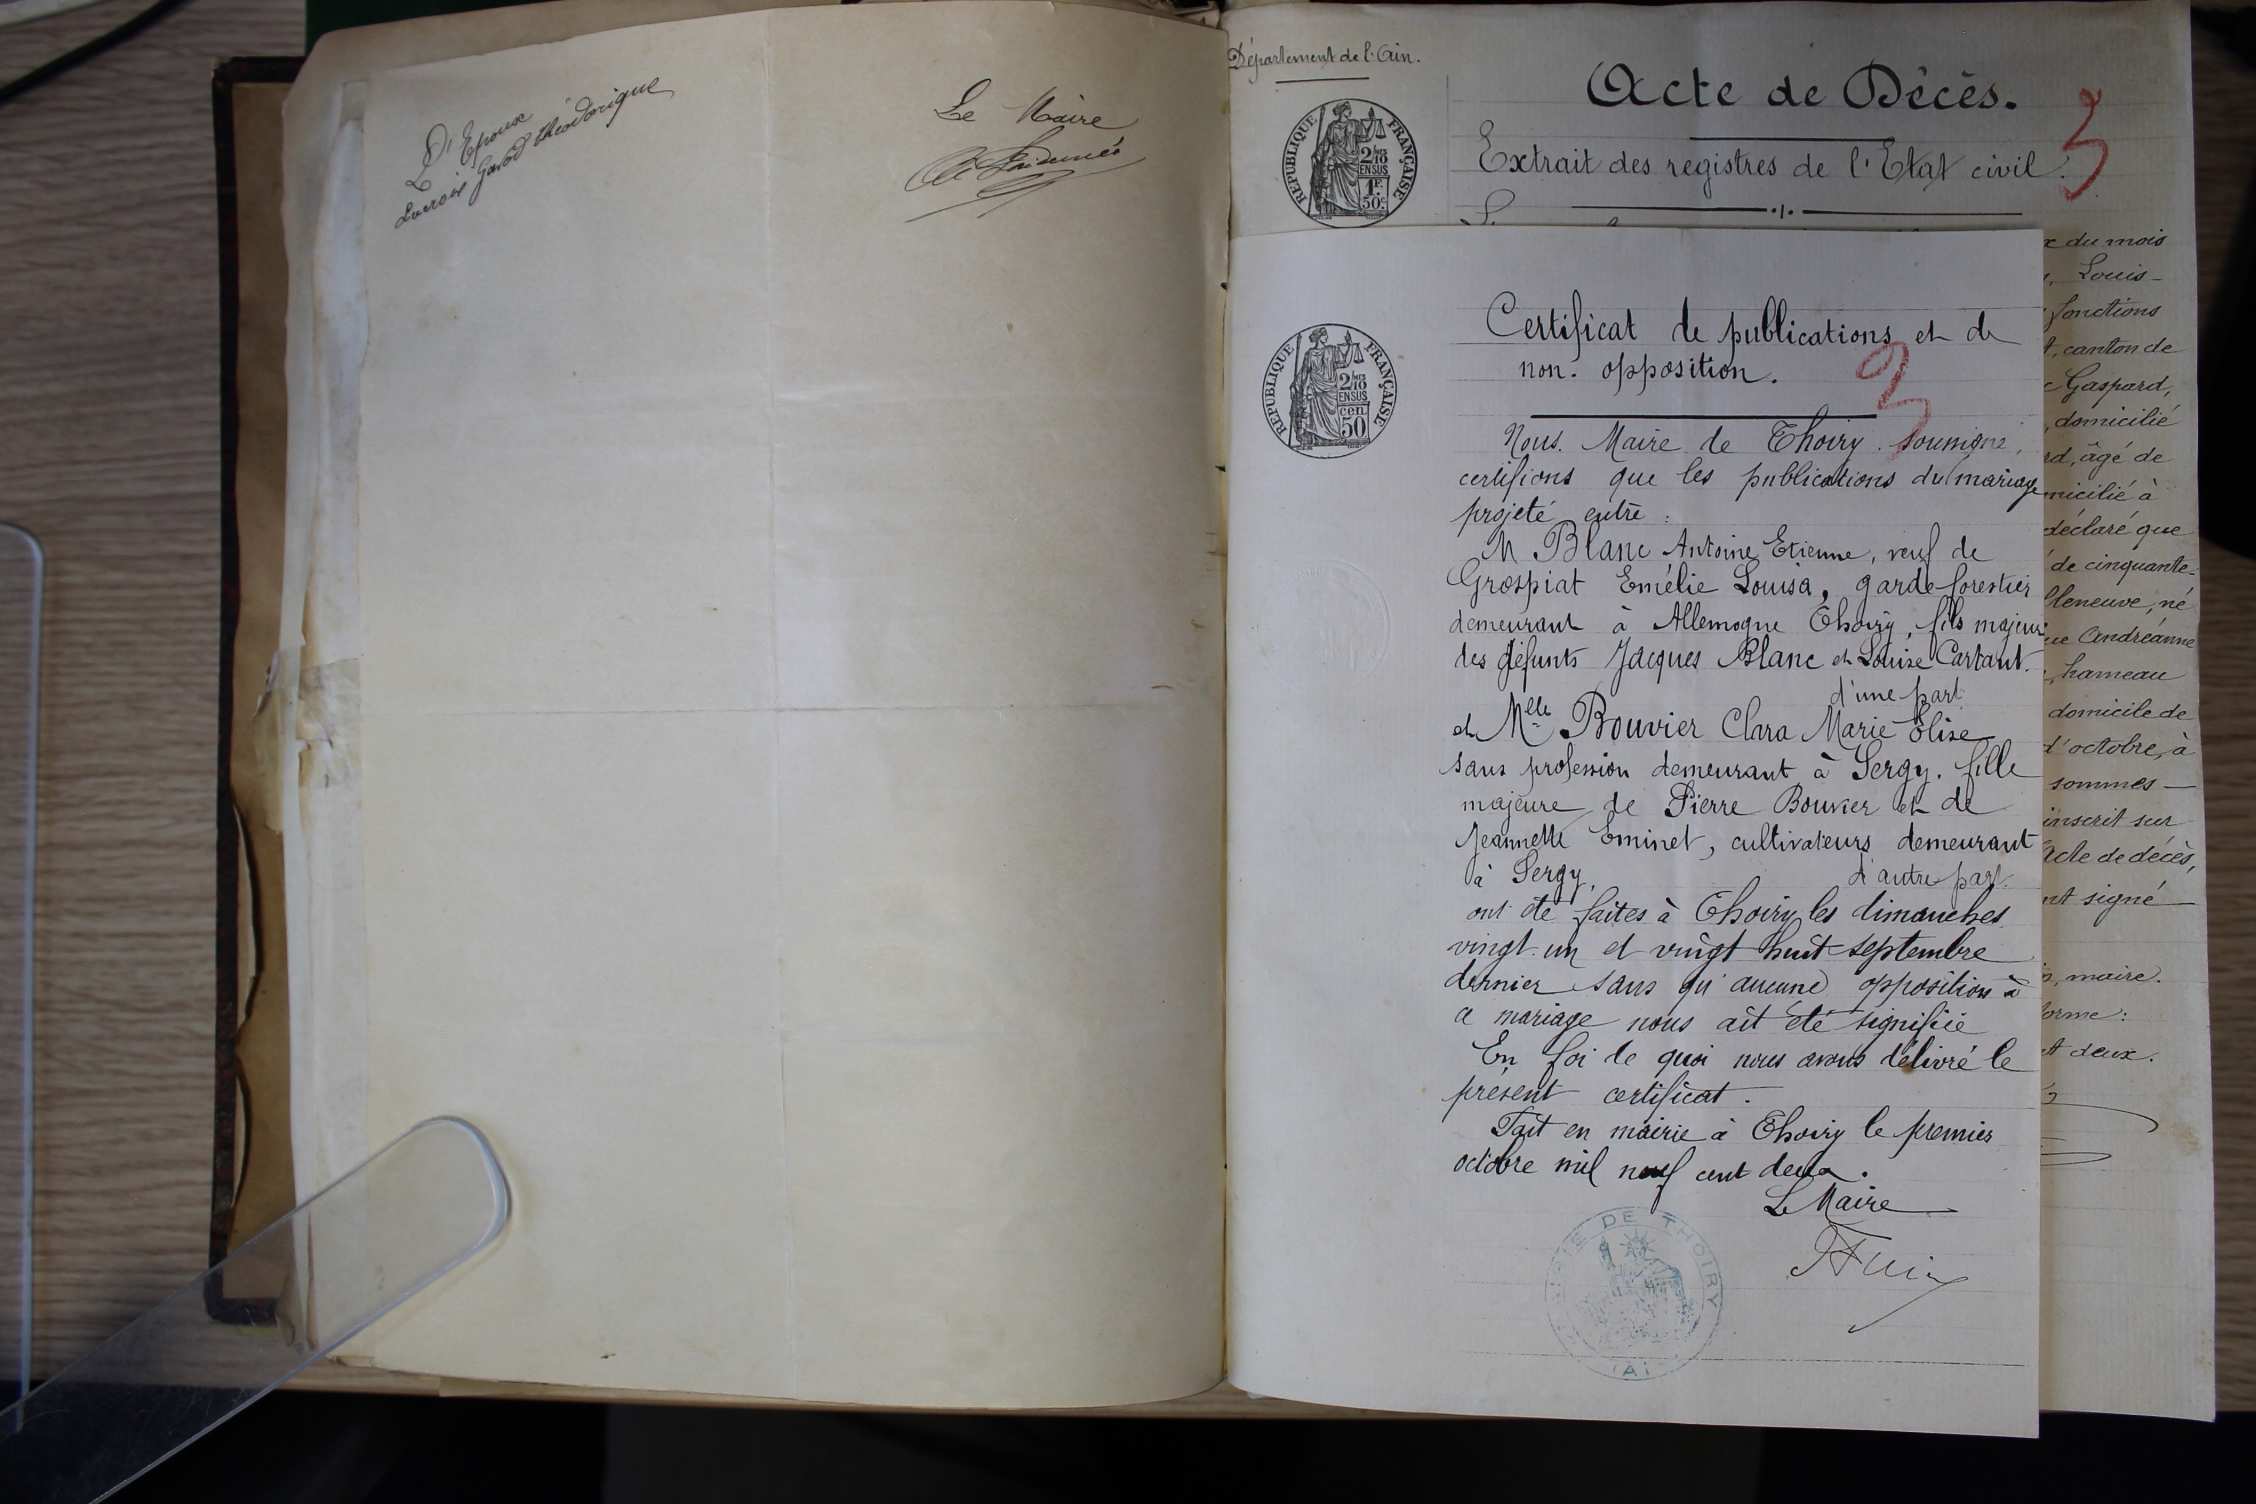 L'Epoux
Lacroix Garod théodorique
Le Maire
Département de l'Ain.
Acte de Décès.
3
Extrait des registres de l'Etat civil.
REPUBLIQUE FRANÇAISE
2/10
EN SUS
1F.
50c
x du mois
Louis-
fonctions
t, canton de
Gaspard,
, domicilié
rd, âgé de
micilié à
déclaré que
de cinquante-
lleneuve, né
ue Andréanne
, hameau
domicile de
d'octobre, à
sommes
inscrit sur
acte de décès,
nt signé
, maire.
forme:
t deux.
Certificat de publications et de
non-opposition.
3
REPUBLIQUE FRANÇAISE
2/10
EN SUS
cen
50
Nous. Maire de Thoiry soussigné,
certifions que les publications du mariage
projeté entre :
M Blanc Antoine Etienne, veuf de
Grospiat Emélie Louisa, garde-forestier
demeurant à Allemogne Thoiry, fils majeur
des défunts Jacques Blanc et Louise Cartant.
d'une part
et Melle Bouvier Clara Marie Elise
sans profession demeurant à Sergy. fille
majeure de Pierre Bouvier et de
Jeannette Eminet, cultivateurs demeurant
à Sergy, d'autre part.
ont été faites à Thoiry les dimanches
vingt-un et vingt huit septembre
dernier sans qu'aucune opposition à
ce mariage nous ait été signifiée
En foi de quoi nous avons délivré le
présent certificat.
Fait en mairie à Thoiry le premier
octobre mil neuf cent deux.
Le Maire
MAIRIE DE THOIRY
(AIN)